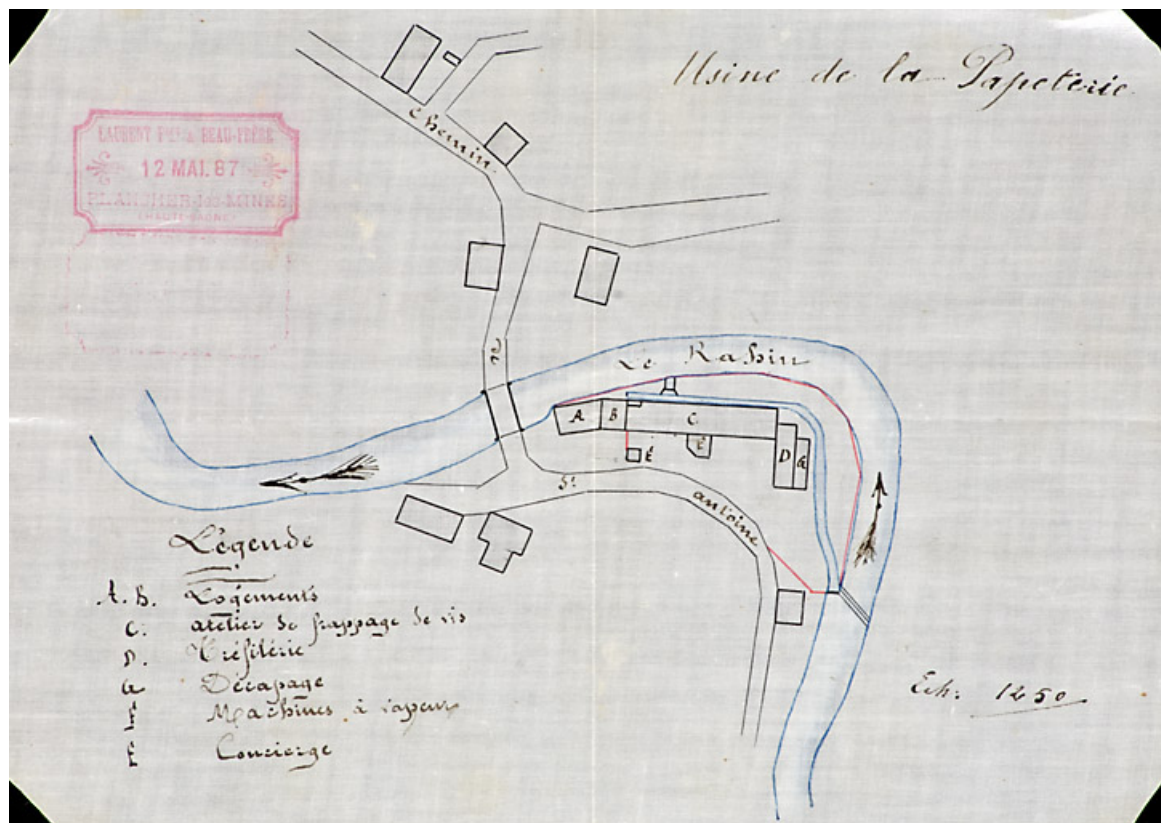 Usine de la Papeterie
LAURENT FRES & BEAU-FRÈRE
12 MAI. 87
PLANCHER-les-MINES
(HAUTE-SAONE)
Chemin
de
Le Rahin
A B C
E É
D G
St
antoine
Légende
A. B. Logements
C. atelier de frappage de vis
D. Tréfilerie
G Décapage
Machines à vapeur
É Concierge
Ech: 1250